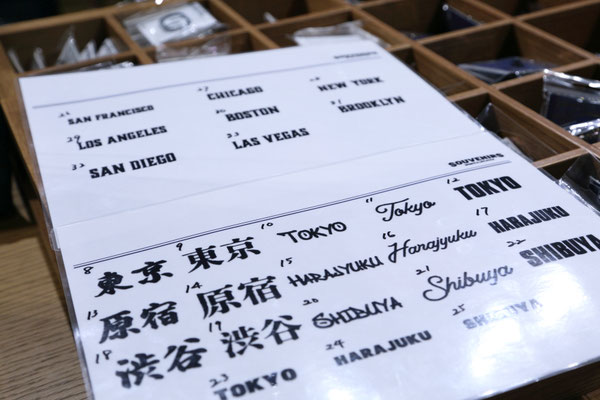 26 SAN FRANCISCO 27 CHICAGO 28 NEW YORK
29 LOS ANGELES 30 BOSTON 31 BROOKLYN
32 SAN DIEGO 33 LAS VEGAS
SOUVENIRS
8 東京 9 東京 10 TOKYO 11 Tokyo 12 TOKYO
13 原宿 14 原宿 15 HARAJYUKU 16 Harajyuku 17 HARAJUKU
18 渋谷 19 渋谷 20 SHIBUYA 21 Shibuya 22 SHIBUYA
23 TOKYO 24 HARAJUKU 25 SHIBUYA